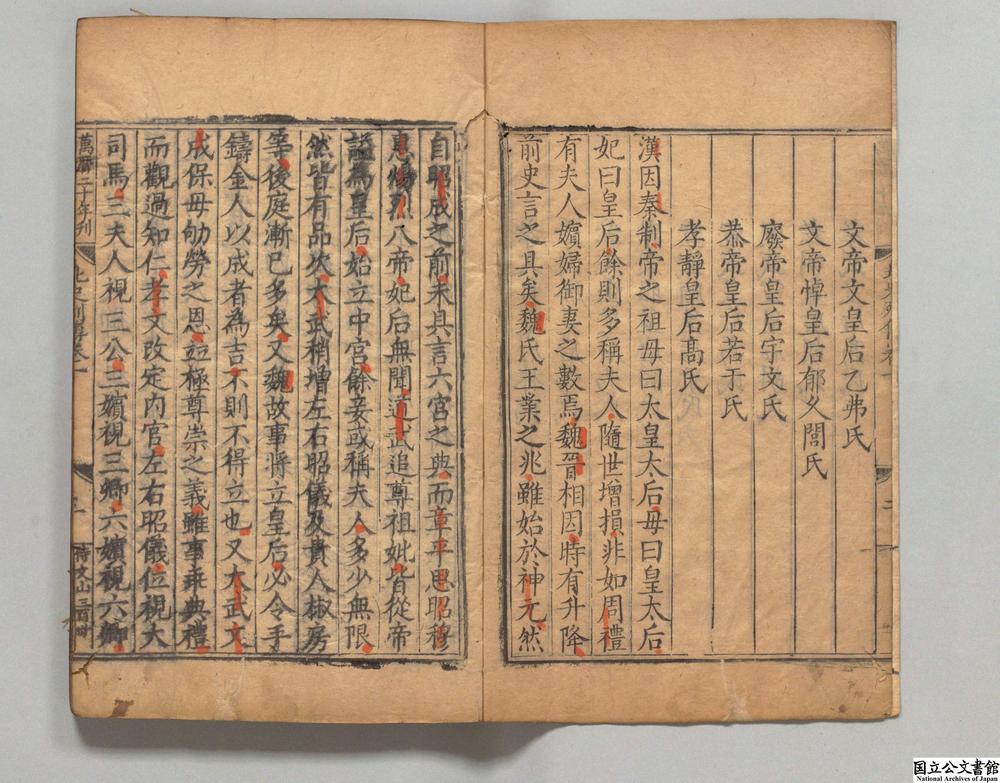 文帝文皇后乙弗氏
文帝悼皇后郁久閭氏
廢帝皇后宇文氏
恭帝皇后若干氏
孝靜皇后高氏
漢因秦制帝之祖母曰太皇太后母曰皇太后
妃曰皇后餘則多稱夫人隨世增損非如周禮
有夫人嬪婦御妻之數焉魏晉相因時有升降
前史言之具矣魏氏王業之兆雖始於神元然
自昭成之前未具言六宮之典而章平思昭穆
惠煬烈八帝妃后無聞道武追尊祖妣皆從帝
謚為皇后始立中宮餘妾或稱夫人多少無限
然皆有品次太武稍增左右昭儀及貴人椒房
等後庭漸已多矣又魏故事將立皇后必令手
鑄金人以成者為吉不則不得立也又太武文
成保母劬勞之恩竝極尊崇之義雖事乖典禮
而觀過知仁孝文改定內官左右昭儀位視大
司馬三夫人視三公三嬪視三卿六嬪視六卿
萬曆二十年刊
北史列傳卷一
国立公文書館
National Archives of Japan